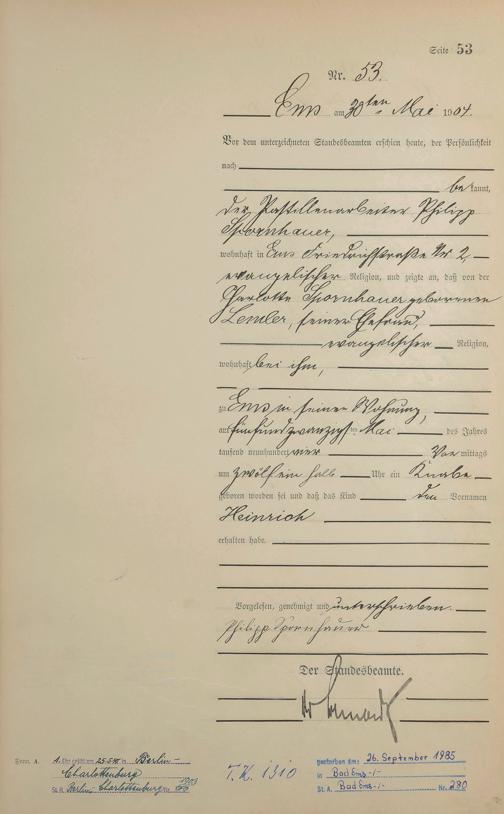 Seite 53
Nr. 53.
Ems am 30ten Mai 1904.
Vor dem unterzeichneten Standesbeamten erschien heute, der Persönlichkeit
nach
bekannt,
der Pastillenarbeiter Philipp
Spornhauer,
wohnhaft in Ems Friedrichstraße Nr 2,
evangelischer Religion, und zeigte an, daß von der
Charlotte Spornhauer geborenen
Lemler, seiner Ehefrau,
evangelischer Religion,
wohnhaft bei ihm,
zu Ems in seiner Wohnung,
am fünfundzwanzigsten Mai des Jahres
tausend neunhundert vier Vormittags
um zwölf ein halb Uhr ein Knabe
geboren worden sei und daß das Kind den Vornamen
Heinrich
erhalten habe.
Vorgelesen, genehmigt und unterschrieben.
Philipp Spornhauer
Der Standesbeamte.
Form. A.
1. Berlin-
Charlottenburg
St.A. Berlin-Charlottenburg
T.K. 1310
gestorben am: 26. September 1985
in Bad Ems -/-
St. A. Bad Ems -/- Nr. 280